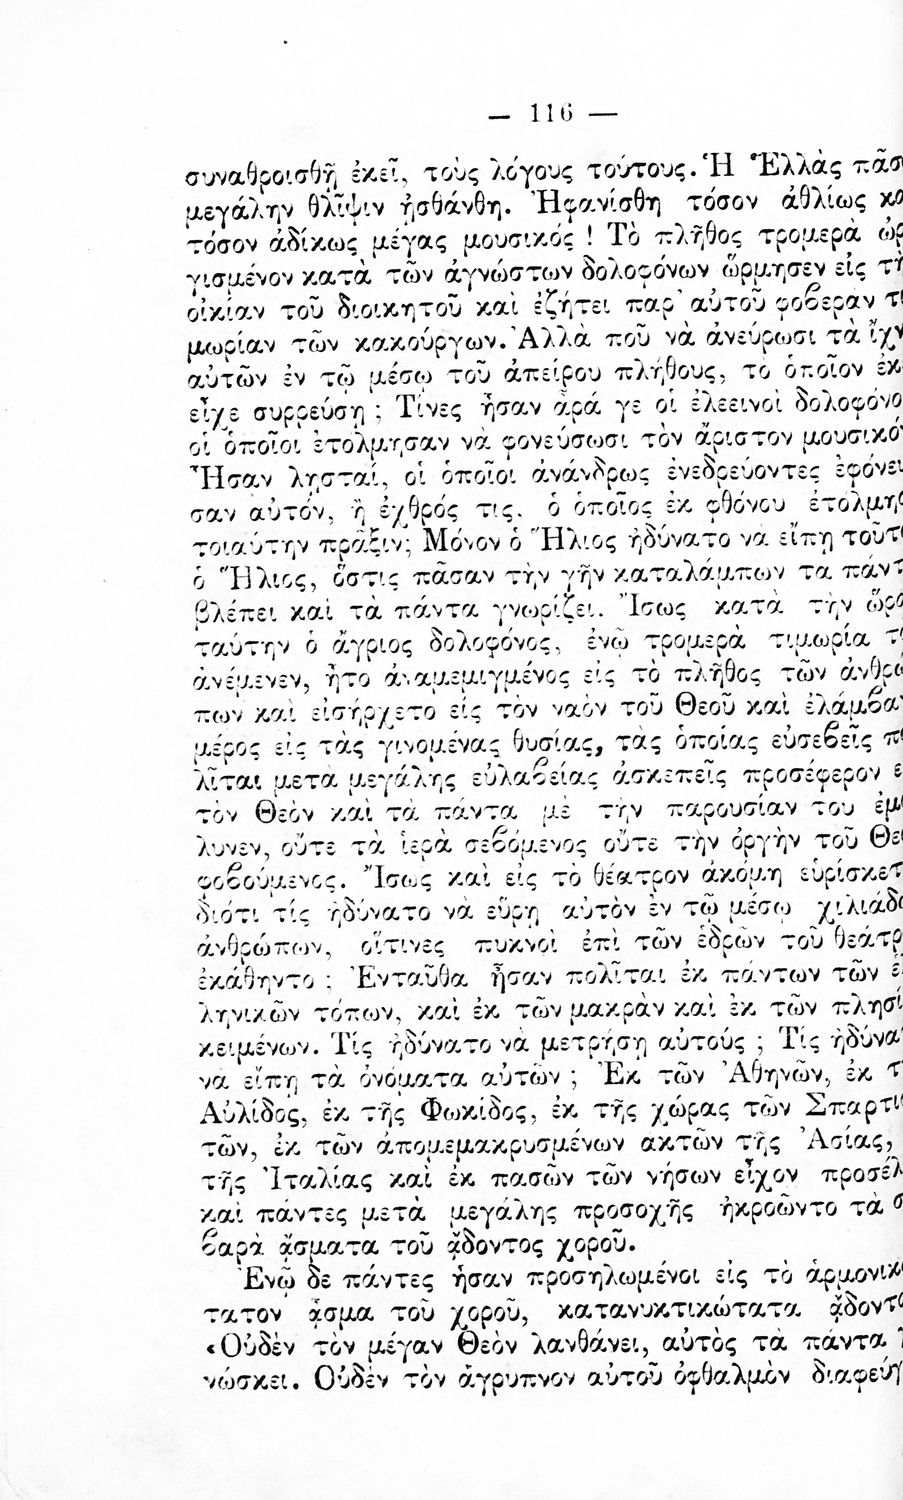 — 116 —
συναθροισθῇ ἐκεῖ, τοὺς λόγους τούτους. Ἡ Ἑλλὰς πᾶσ
μεγάλην θλῖψιν ᾐσθάνθη. Ἠφανίσθη τόσον ἀθλίως κα
τόσον ἀδίκως μέγας μουσικός ! Τὸ πλῆθος τρομερὰ ὠρ
γισμένον κατὰ τῶν ἀγνώστων δολοφόνων ὥρμησεν εἰς τὴ
οἰκίαν τοῦ διοικητοῦ καὶ ἐζήτει παρ' αὐτοῦ φοβερὰν τι
μωρίαν τῶν κακούργων. Ἀλλὰ ποῦ νὰ ἀνεύρωσι τὰ ἴχν
αὐτῶν ἐν τῷ μέσῳ τοῦ ἀπείρου πλήθους, τὸ ὁποῖον ἐκ
εἶχε συρρεύσῃ ; Τίνες ἦσαν ἆρά γε οἱ ἐλεεινοὶ δολοφόνο
οἱ ὁποῖοι ἐτόλμησαν νὰ φονεύσωσι τὸν ἄριστον μουσικό
Ἦσαν λῃσταί, οἱ ὁποῖοι ἀνάνδρως ἐνεδρεύοντες ἐφόνευ
σαν αὐτόν, ἢ ἐχθρός τις, ὁ ὁποῖος ἐκ φθόνου ἐτόλμησ
τοιαύτην πρᾶξιν; Μόνον ὁ Ἥλιος ἠδύνατο νὰ εἴπῃ τοῦτ
ὁ Ἥλιος, ὅστις πᾶσαν τὴν γῆν καταλάμπων τὰ πάντ
βλέπει καὶ τὰ πάντα γνωρίζει. Ἴσως κατὰ τὴν ὥρα
ταύτην ὁ ἄγριος δολοφόνος, ἐνῷ τρομερὰ τιμωρία τὸ
ἀνέμενεν, ἦτο ἀναμεμιγμένος εἰς τὸ πλῆθος τῶν ἀνθρώ
πων καὶ εἰσήρχετο εἰς τὸν ναὸν τοῦ Θεοῦ καὶ ἐλάμβα
μέρος εἰς τὰς γινομένας θυσίας, τὰς ὁποίας εὐσεβεῖς π
λῖται μετὰ μεγάλης εὐλαβείας ἀσκεπεῖς προσέφερον ε
τὸν Θεὸν καὶ τὰ πάντα μὲ τὴν παρουσίαν του ἐμ
λυνεν, οὔτε τὰ ἱερὰ σεβόμενος οὔτε τὴν ὀργὴν τοῦ Θε
φοβούμενος. Ἴσως καὶ εἰς τὸ θέατρον ἀκόμη εὑρίσκετ
διότι τίς ἠδύνατο νὰ εὕρῃ αὐτὸν ἐν τῷ μέσῳ χιλιάδ
ἀνθρώπων, οἵτινες πυκνοὶ ἐπὶ τῶν ἑδρῶν τοῦ θεάτρ
ἐκάθηντο ; Ἐνταῦθα ἦσαν πολῖται ἐκ πάντων τῶν ἑ
ληνικῶν τόπων, καὶ ἐκ τῶν μακρὰν καὶ ἐκ τῶν πλησί
κειμένων. Τίς ἠδύνατο νὰ μετρήσῃ αὐτούς ; Τίς ἠδύνα
νὰ εἴπῃ τὰ ὀνόματα αὐτῶν ; Ἐκ τῶν Ἀθηνῶν, ἐκ τ
Αὐλίδος, ἐκ τῆς Φωκίδος, ἐκ τῆς χώρας τῶν Σπαρτι
τῶν, ἐκ τῶν ἀπομεμακρυσμένων ἀκτῶν τῆς Ἀσίας,
τῆς Ἰταλίας καὶ ἐκ πασῶν τῶν νήσων εἶχον προσέλ
καὶ πάντες μετὰ μεγάλης προσοχῆς ἠκροῶντο τὰ σ
βαρὰ ᾄσματα τοῦ ᾄδοντος χοροῦ.
Ἐνῷ δὲ πάντες ἦσαν προσηλωμένοι εἰς τὸ ἁρμονικ
τατον ᾆσμα τοῦ χοροῦ, κατανυκτικώτατα ᾄδοντο
«Οὐδὲν τὸν μέγαν Θεὸν λανθάνει, αὐτὸς τὰ πάντα γ
νώσκει. Οὐδὲν τὸν ἄγρυπνον αὐτοῦ ὀφθαλμὸν διαφεύγ